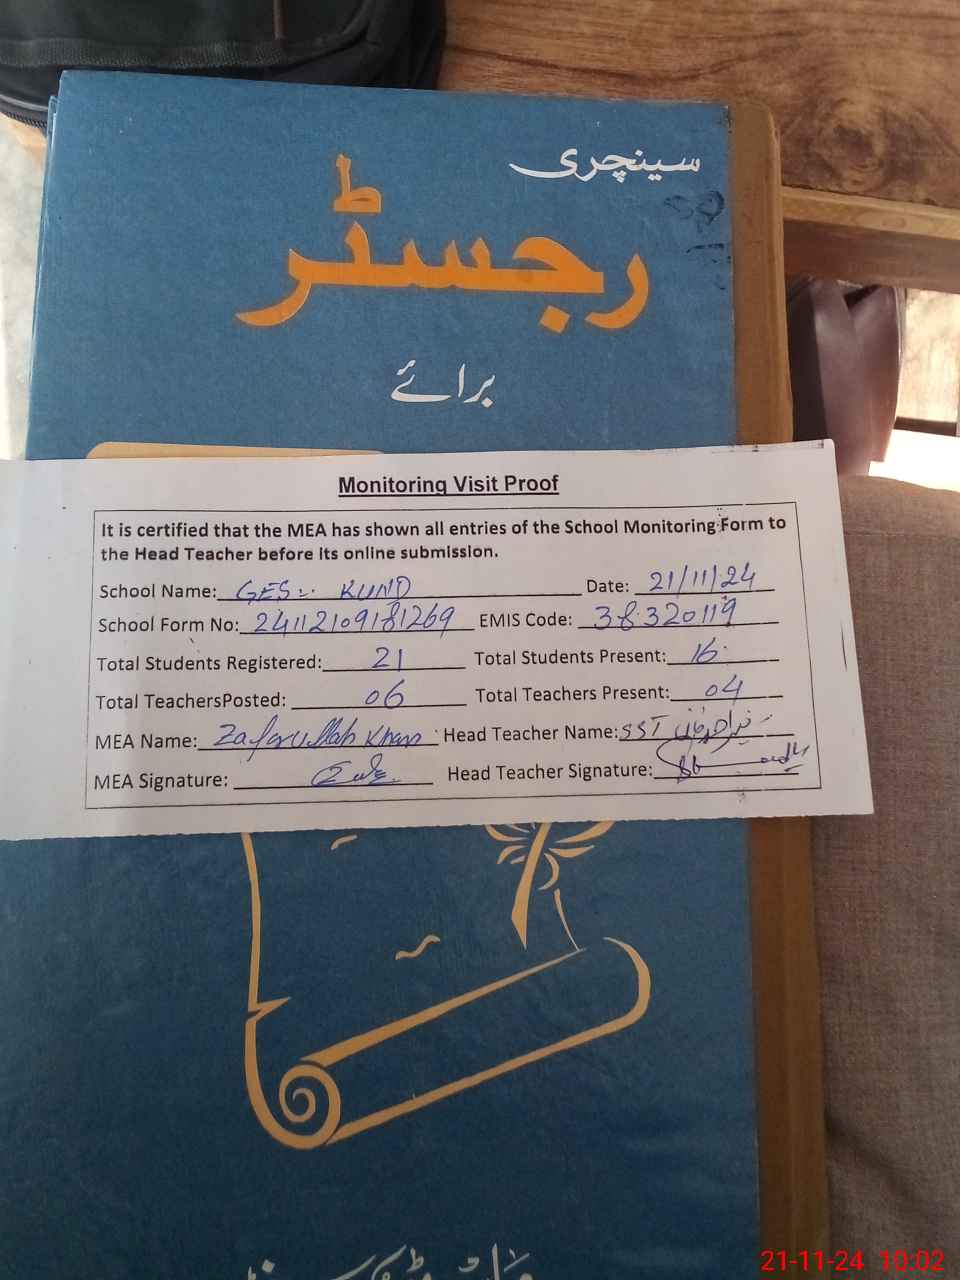 سینچری
رجسٹر
برائے
Monitoring Visit Proof
It is certified that the MEA has shown all entries of the School Monitoring Form to
the Head Teacher before its online submission.
School Name: GES KUND Date: 21/11/24
School Form No: 24112109181269 EMIS Code: 38320119
Total Students Registered: 21 Total Students Present: 16
Total TeachersPosted: 06 Total Teachers Present: 04
MEA Name: Zafarullah Khan Head Teacher Name: SST
MEA Signature: Head Teacher Signature:
21-11-24 10:02